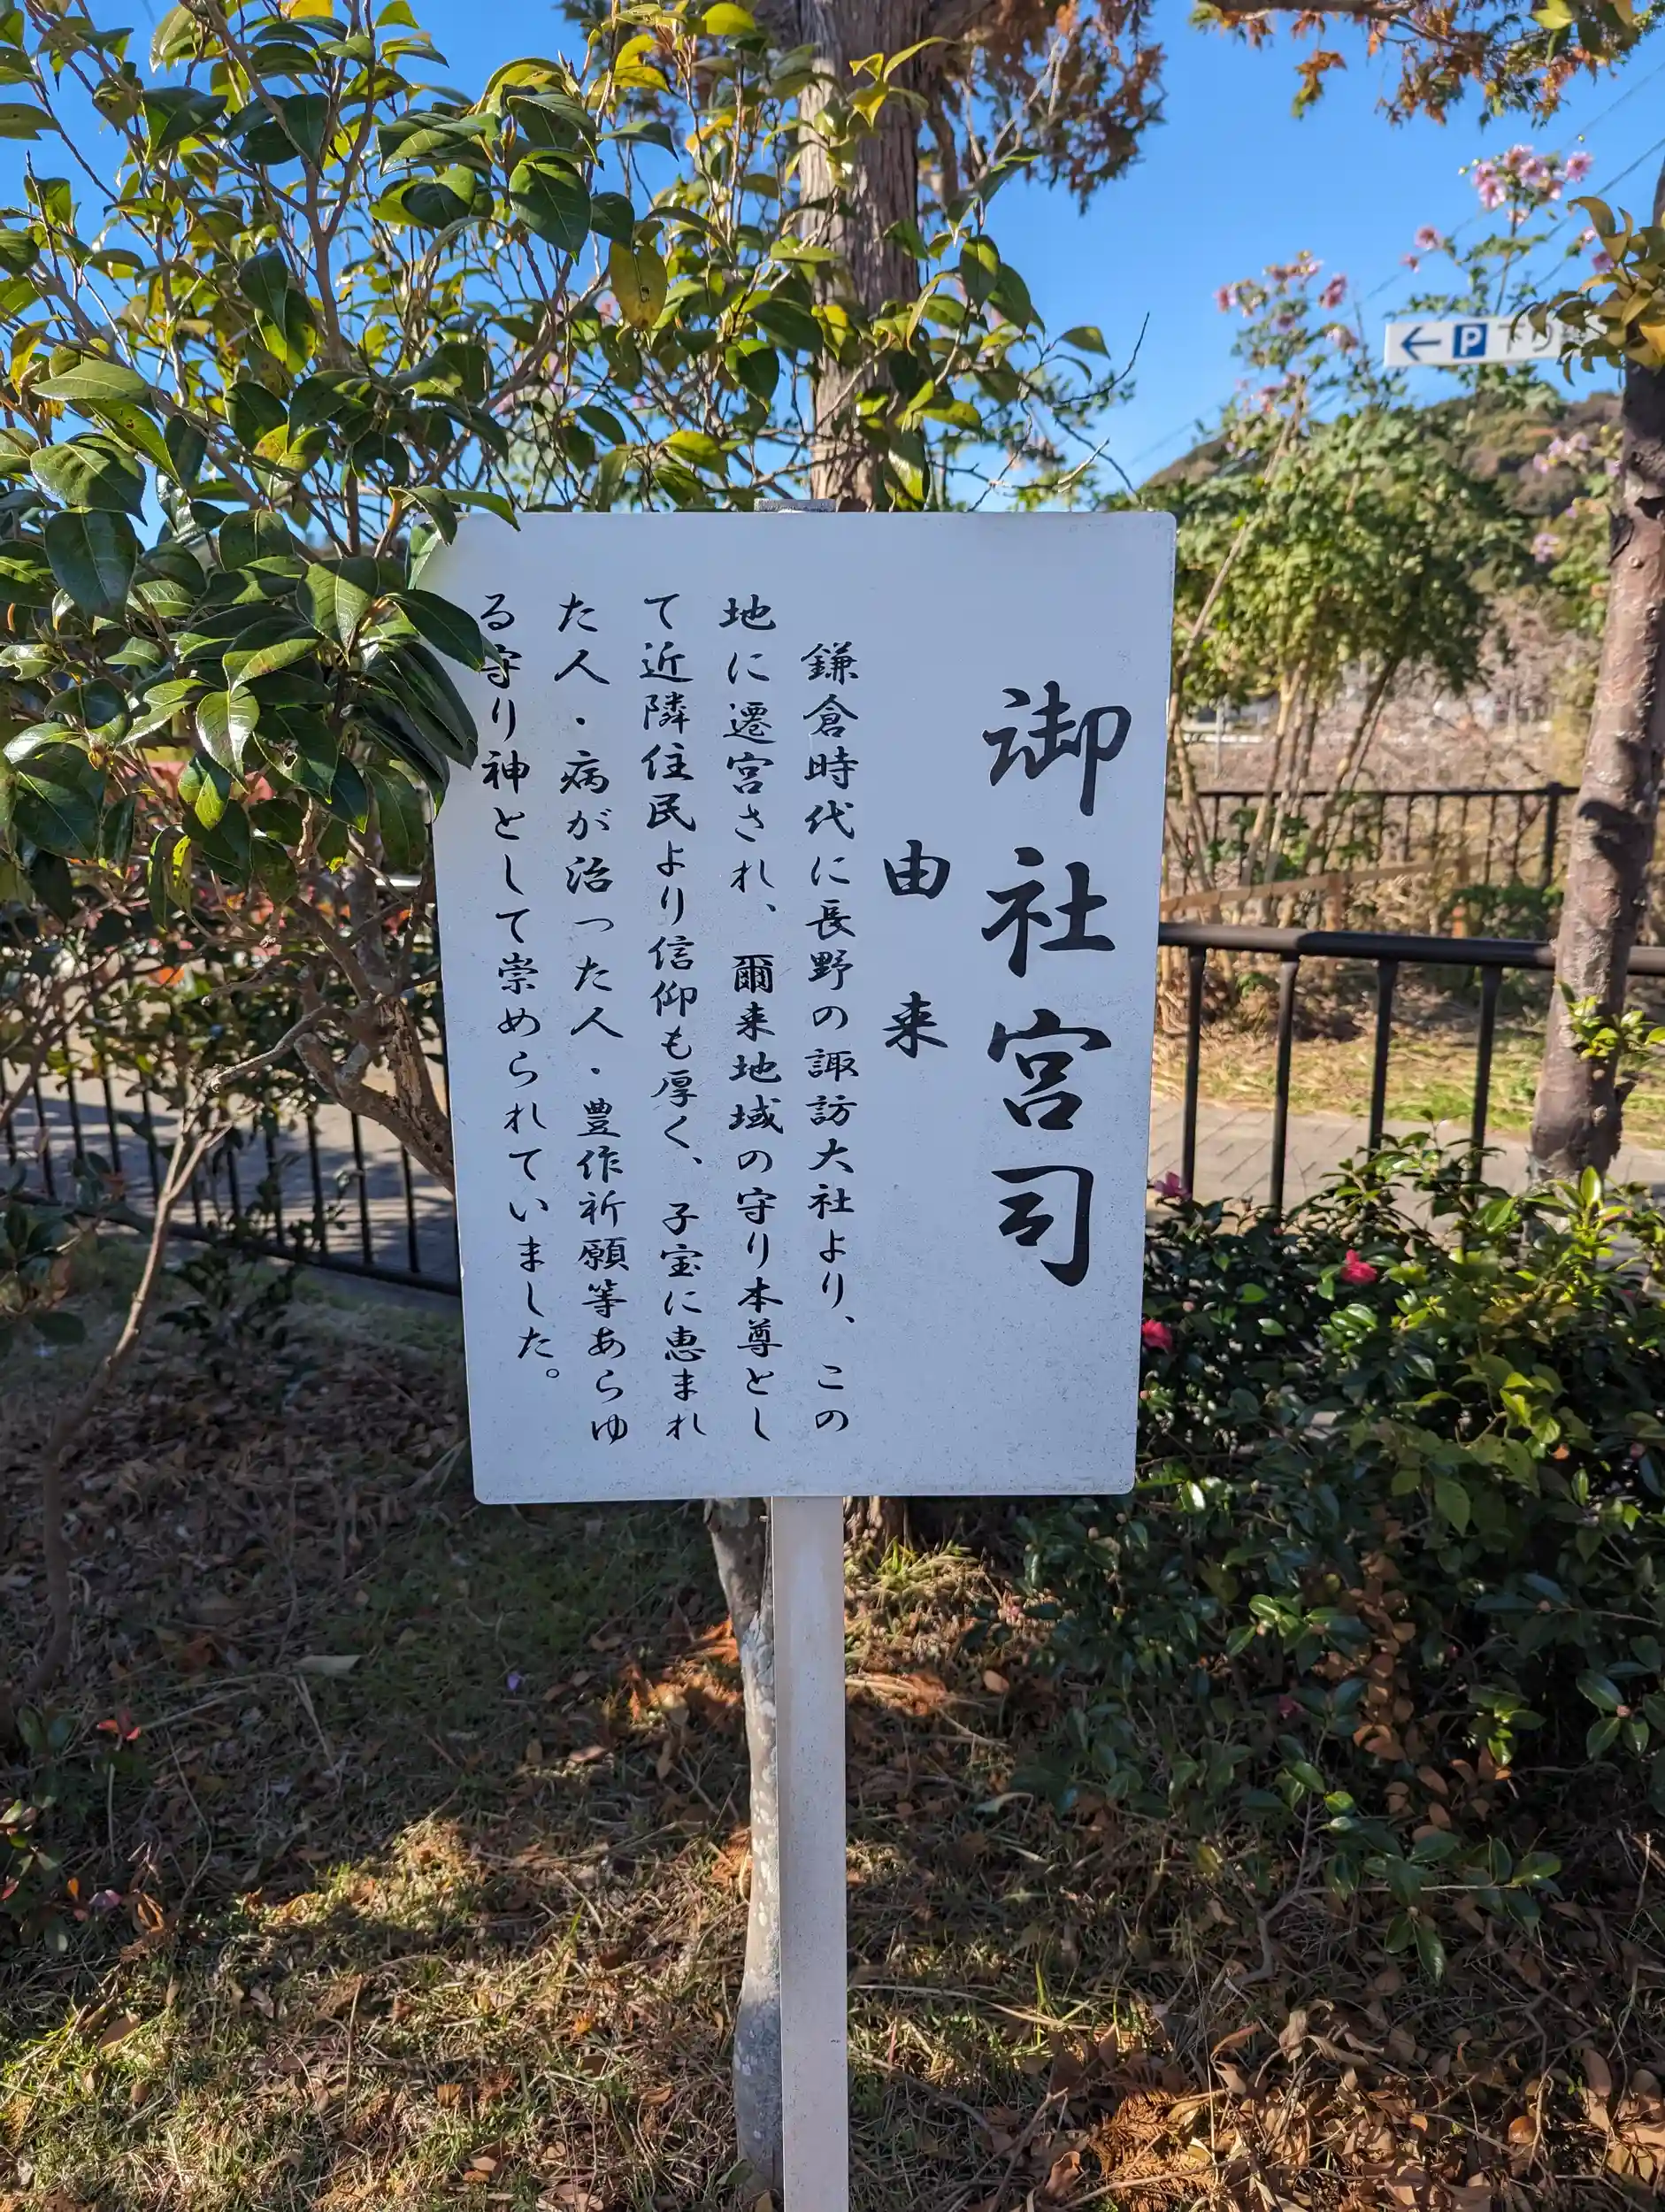 御社宮司
由来
鎌倉時代に長野の諏訪大社より、この
地に遷宮され、爾来地域の守り本尊とし
て近隣住民より信仰も厚く、子宝に恵まれ
た人・病が治った人・豊作祈願等あらゆ
る守り神として崇められていました。
← P 下り